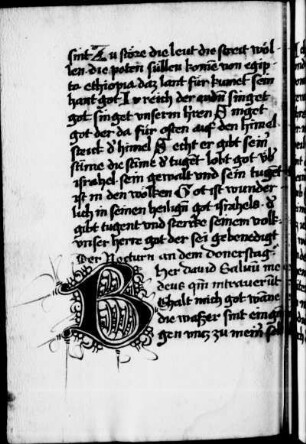 sint Zu störe die leut die streit wöl
len die poten süllen kome von egip
to ethiopia daz lant für kumet sein
hant got Ir reich der erden singet
got singet unserm herren Singet
got der da für osten auf den himel
steick d' himel Secht er gibt sein
stime die stime d' tugent lobt got üb'
israhel sein gewalt und sein tugent
ist in den wolken Got ist wunder
lich in seinen heiligen got israhels d'
gibt tugent und stercke seinem volk
unser herre got der sei gebenedigt
Der Nocturn an dem Donerstag
her david Salvum me
deus qm intraverunt
Bhalt mich got wane
die wasser sint einga
gen untz zu mein sel